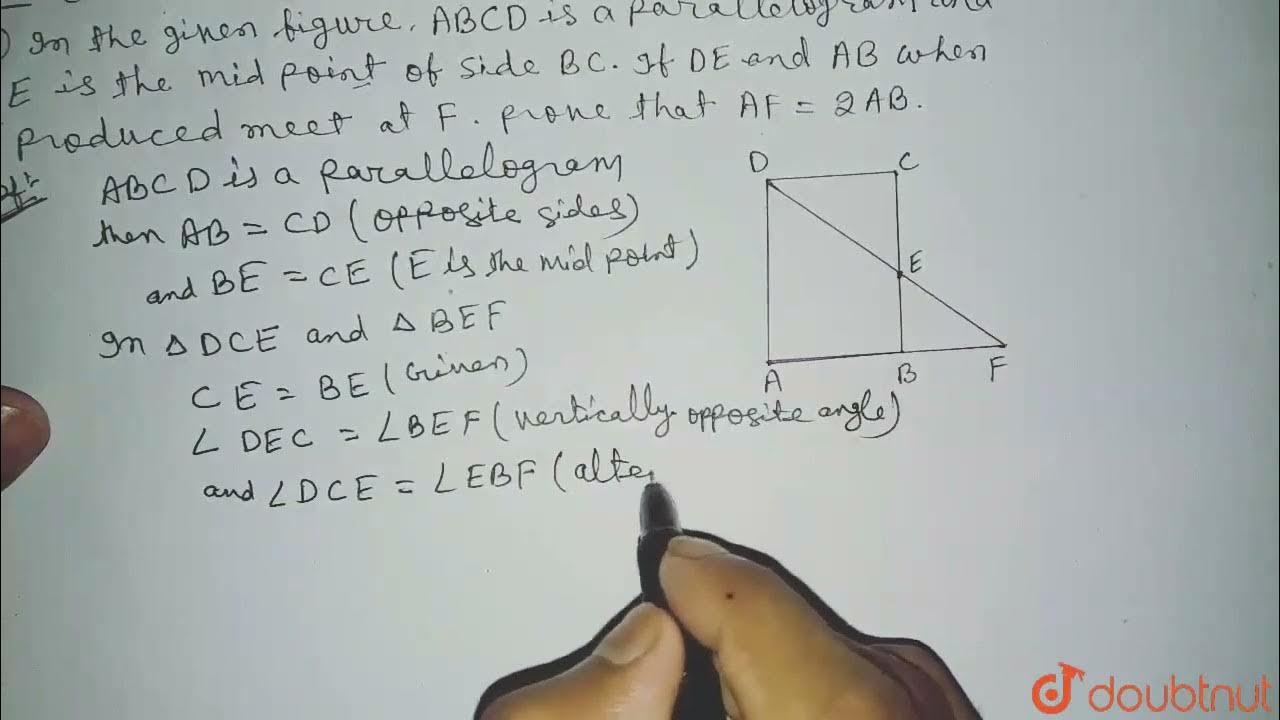 ) In the given figure, ABCD is a parallelogram and
E is the mid point of side BC. If DE and AB when
produced meet at F. prove that AF = 2AB.
ABCD is a parallelogram
then AB = CD (opposite sides)
and BE = CE (E is the mid point)
In △ DCE and △ BEF
CE = BE (Given)
∠ DEC = ∠BEF (vertically opposite angle)
and ∠DCE = ∠EBF (alter
D
C
E
A
B
F
doubtnut